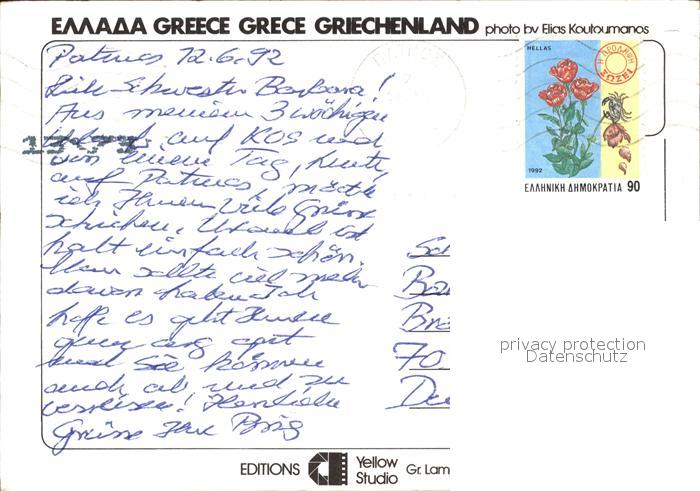 ΕΛΛΑΔΑ GREECE GRECE GRIECHENLAND photo by Elias Koutoumanos
HELLAS
1992
ΕΛΛΗΝΙΚΗ ΔΗΜΟΚΡΑΤΙΑ 90
Patmos 12.6.92
Liebe Schwester Barbara!
Aus meinem 3 wöchigen
Urlaub auf KOS und
von einem Tag, heute,
auf Patmos, möchte
ich Ihnen viele Grüsse
schicken. Urlaub ist
halt einfach schön.
Man sollte viel mehr
davon haben. Ich
hoffe es geht Ihnen
ganz arg gut
und Sie können
auch ab und zu
verreisen! Herzliche
Grüsse Ihre
13-73
70
privacy protection
Datenschutz
EDITIONS Yellow Studio Gr. Lam